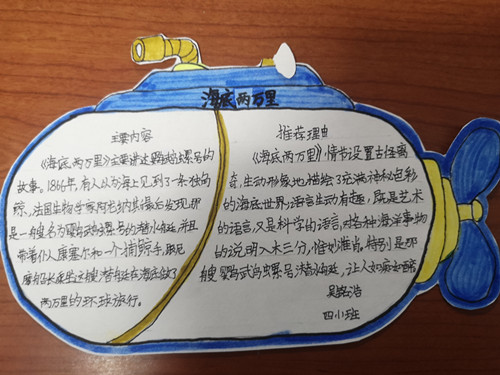 海底两万里
主要内容
《海底两万里》主要讲述鹦鹉螺号的
故事。1866年，有人以为海上见到了一条独角
鲸，法国生物学家阿龙纳斯最后发现那
是一艘名为鹦鹉螺号的潜水艇，并且
带着仆人康塞尔和一个捕鲸手，跟尼
摩船长乘坐这艘潜艇在海底做了
两万里的环球旅行。
推荐理由
《海底两万里》，情节设置古怪离
奇，生动形象地描绘了充满神秘色彩
的海底世界；语言生动有趣，既是艺术
的语言，又是科学的语言，对各种海洋事物
的说明入木三分，惟妙惟肖，特别是那
艘鹦鹉螺号潜水艇，让人如痴如醉
浩
四小班